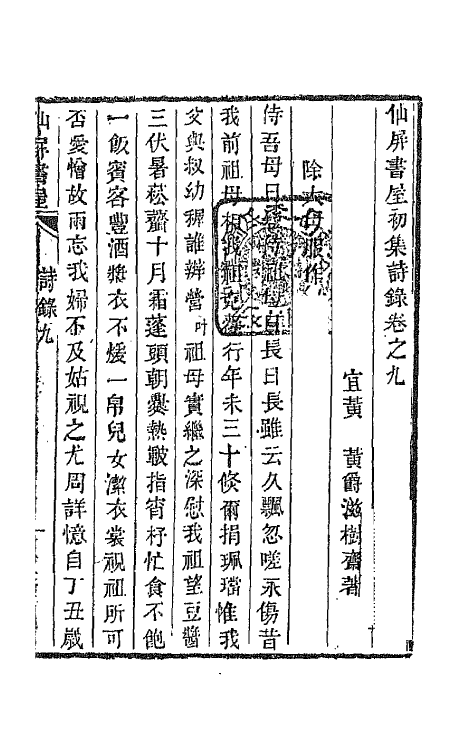 仙屏書屋初集詩錄卷之九
宜黃 黃爵滋樹齋著
除大母服作
侍吾母日
長日長雖云久飄忽嗟永傷昔
我前祖母
行年未三十倏爾捐珮璫惟我
父與叔幼穉誰辯當叶祖母實繼之深慰我祖望豆醬
三伏暑菘虀十月霜蓬頭朝爨熱皸指宵杼忙食不飽
一飯賓客豐酒漿衣不煖一帛兒女潔衣裳視祖所可
否愛憎故兩忘我婦不及姑視之尤周詳憶自丁丑歲
仙屏書屋
詩錄九